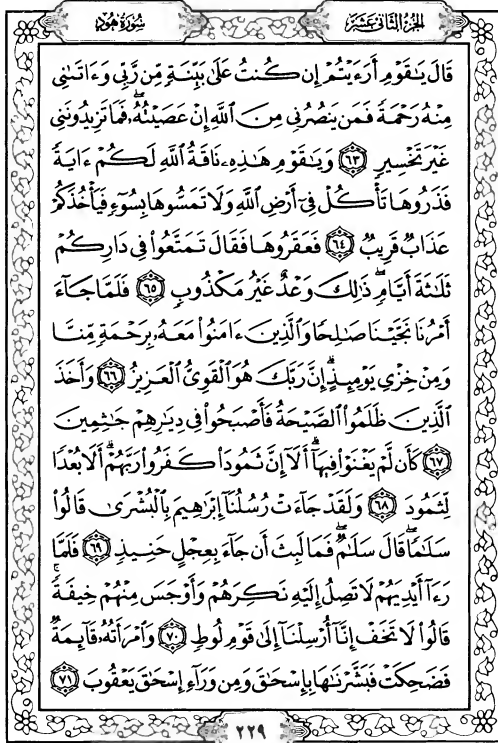 الجزء الثانى عشر
سورة هود
قَالَ يَٰقَوْمِ أَرَءَيْتُمْ إِن كُنتُ عَلَىٰ بَيِّنَةٍ مِّن رَّبِّى وَءَاتَىٰنِى
مِنْهُ رَحْمَةً فَمَن يَنصُرُنِى مِنَ ٱللَّهِ إِنْ عَصَيْتُهُۥۖ فَمَا تَزِيدُونَنِى
غَيْرَ تَخْسِيرٍ ٦٣ وَيَٰقَوْمِ هَٰذِهِۦ نَاقَةُ ٱللَّهِ لَكُمْ ءَايَةً
فَذَرُوهَا تَأْكُلْ فِىٓ أَرْضِ ٱللَّهِ وَلَا تَمَسُّوهَا بِسُوٓءٍ فَيَأْخُذَكُمْ
عَذَابٌ قَرِيبٌ ٦٤ فَعَقَرُوهَا فَقَالَ تَمَتَّعُوا۟ فِى دَارِكُمْ
ثَلَٰثَةَ أَيَّامٍۖ ذَٰلِكَ وَعْدٌ غَيْرُ مَكْذُوبٍ ٦٥ فَلَمَّا جَآءَ
أَمْرُنَا نَجَّيْنَا صَٰلِحًا وَٱلَّذِينَ ءَامَنُوا۟ مَعَهُۥ بِرَحْمَةٍ مِّنَّا
وَمِنْ خِزْىِ يَوْمِئِذٍۗ إِنَّ رَبَّكَ هُوَ ٱلْقَوِىُّ ٱلْعَزِيزُ ٦٦ وَأَخَذَ
ٱلَّذِينَ ظَلَمُوا۟ ٱلصَّيْحَةُ فَأَصْبَحُوا۟ فِى دِيَٰرِهِمْ جَٰثِمِينَ
٦٧ كَأَن لَّمْ يَغْنَوْا۟ فِيهَآۗ أَلَآ إِنَّ ثَمُودَا۟ كَفَرُوا۟ رَبَّهُمْۗ أَلَا بُعْدًا
لِّثَمُودَ ٦٨ وَلَقَدْ جَآءَتْ رُسُلُنَآ إِبْرَٰهِيمَ بِٱلْبُشْرَىٰ قَالُوا۟
سَلَٰمًاۖ قَالَ سَلَٰمٌۖ فَمَا لَبِثَ أَن جَآءَ بِعِجْلٍ حَنِيذٍ ٦٩ فَلَمَّا
رَءَآ أَيْدِيَهُمْ لَا تَصِلُ إِلَيْهِ نَكِرَهُمْ وَأَوْجَسَ مِنْهُمْ خِيفَةًۚ
قَالُوا۟ لَا تَخَفْ إِنَّآ أُرْسِلْنَآ إِلَىٰ قَوْمِ لُوطٍ ٧٠ وَٱمْرَأَتُهُۥ قَآئِمَةٌ
فَضَحِكَتْ فَبَشَّرْنَٰهَا بِإِسْحَٰقَ وَمِن وَرَآءِ إِسْحَٰقَ يَعْقُوبَ ٧١
٢٢٩